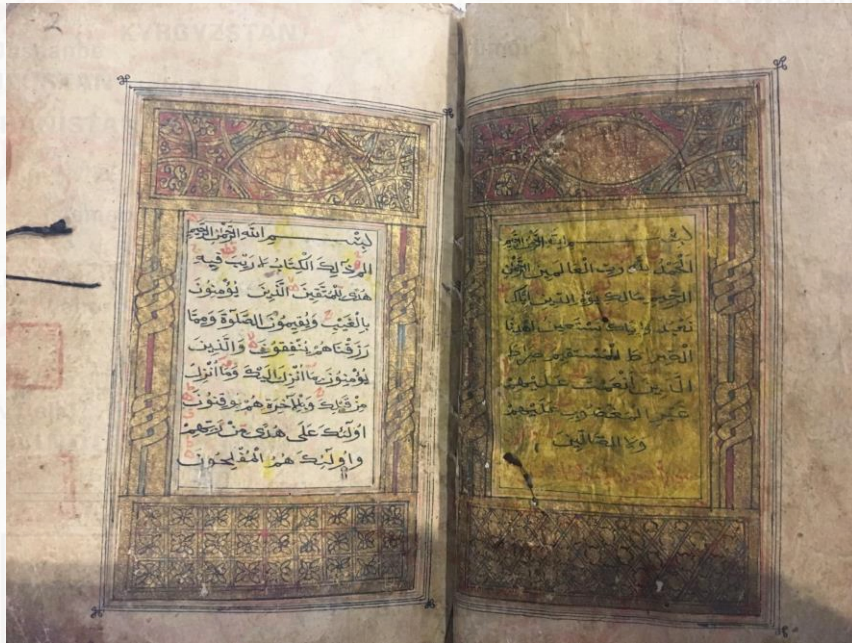 2
بسم الله الرحمن الرحيم
الحمد لله رب العالمين الرحمن
الرحيم مالك يوم الدين اياك
نعبد واياك نستعين اهدنا
الصراط المستقيم صراط
الذين أنعمت عليهم
غير المغضوب عليهم
ولا الضالين
بسم الله الرحمن الرحيم
الم ذالك الكتاب لا ريب فيه
هدى للمتقين الذين يؤمنون
بالغيب ويقيمون الصلوة ومما
رزقناهم ينفقون والذين
يؤمنون بما انزل اليك وما انزل
من قبلك وبالاخرة هم يوقنون
اولئك على هدى من ربهم
واولئك هم المفلحون